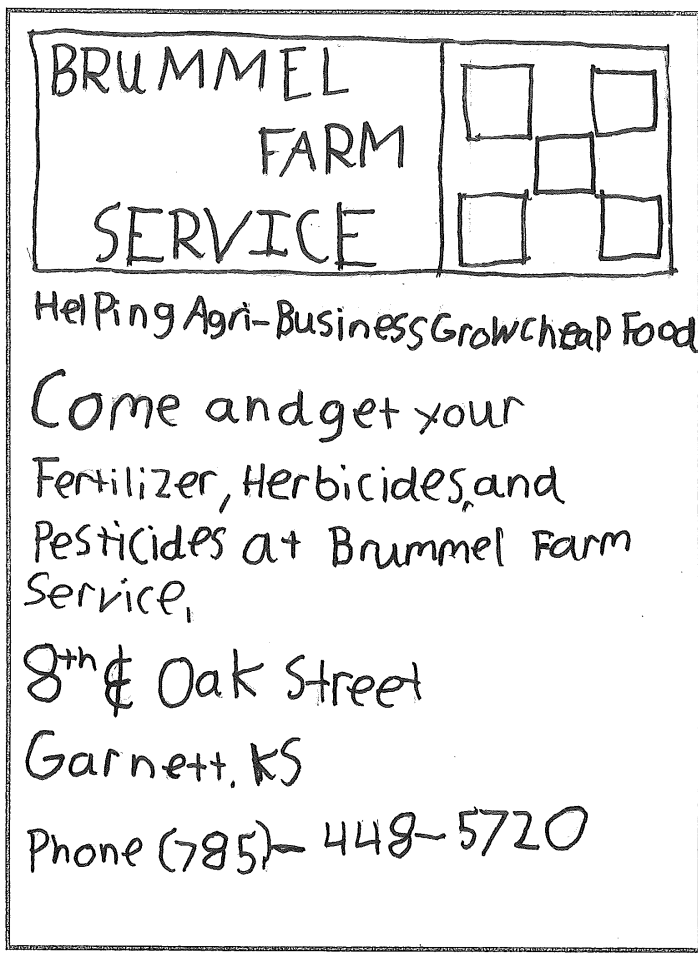 BRUMMEL
FARM
SERVICE
Helping Agri-Business Grow cheap Food
Come and get your
Fertilizer, Herbicides, and
Pesticides at Brummel Farm
Service,
8th & Oak Street
Garnett, KS
Phone (785)-448-5720